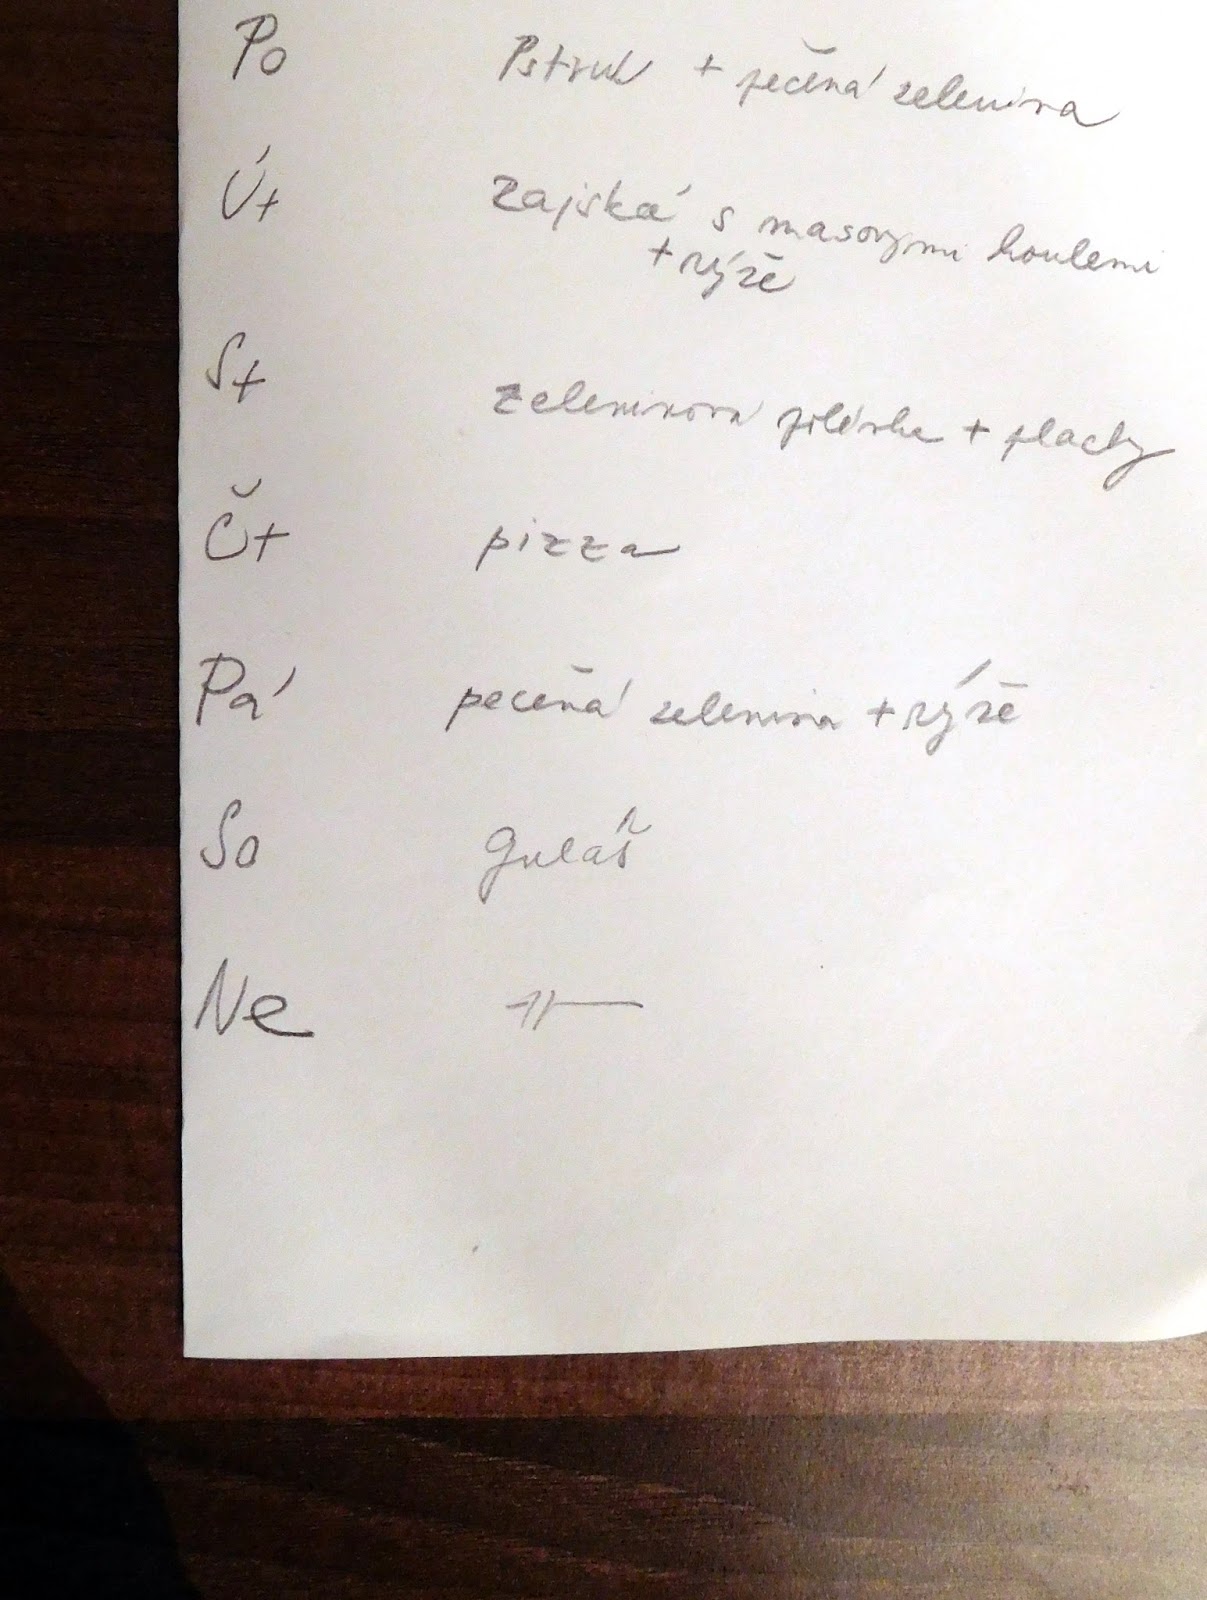 Po Pstruh + pečená zelenina
Út Zajská s masovými koulemi
+ rýže
St Zeleninová polévka + placky
Čt pizza
Pá pečená zelenina + rýže
So Guláš
Ne -//-